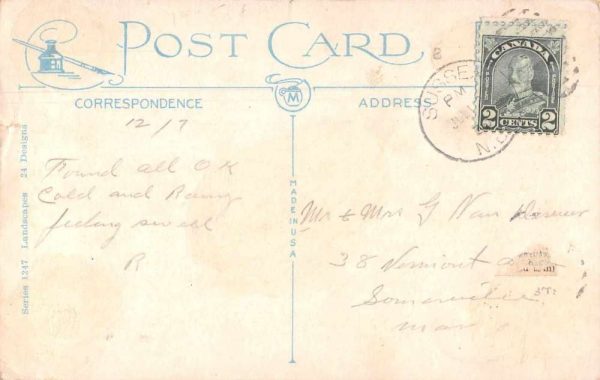 POST CARD
CORRESPONDENCE
ADDRESS
CANADA
2 CENTS 2
SUSSE
PM
N.
M
MADE IN USA
Series 1247 Landscapes 24 Designs
12/7
Found all OK
Cold and Rainy
feeling
R
Mr & Mrs G Van
38 Vermont
Somerville
Mass